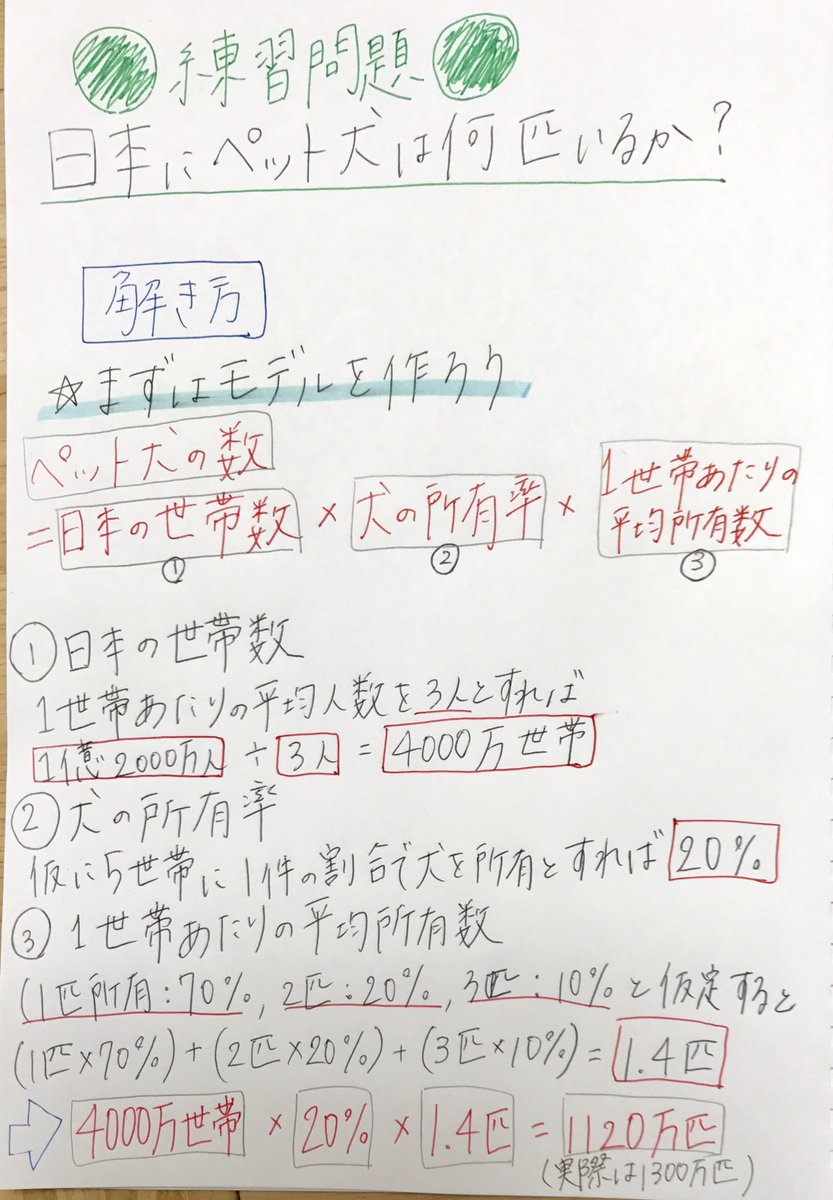 練習問題
日本にペット犬は何匹いるか?
解き方
☆まずはモデルを作ろう
ペット犬の数
=日本の世帯数 × 犬の所有率 × 1世帯あたりの平均所有数
① ② ③
① 日本の世帯数
1世帯あたりの平均人数を3人とすれば
1億2000万人 ÷ 3人 = 4000万世帯
② 犬の所有率
仮に5世帯に1件の割合で犬を所有とすれば 20%
③ 1世帯あたりの平均所有数
(1匹所有:70%, 2匹:20%, 3匹:10%と仮定すると
(1匹×70%)+(2匹×20%)+(3匹×10%)=1.4匹
⇨ 4000万世帯 × 20% × 1.4匹 = 1120万匹
(実際は1300万匹)